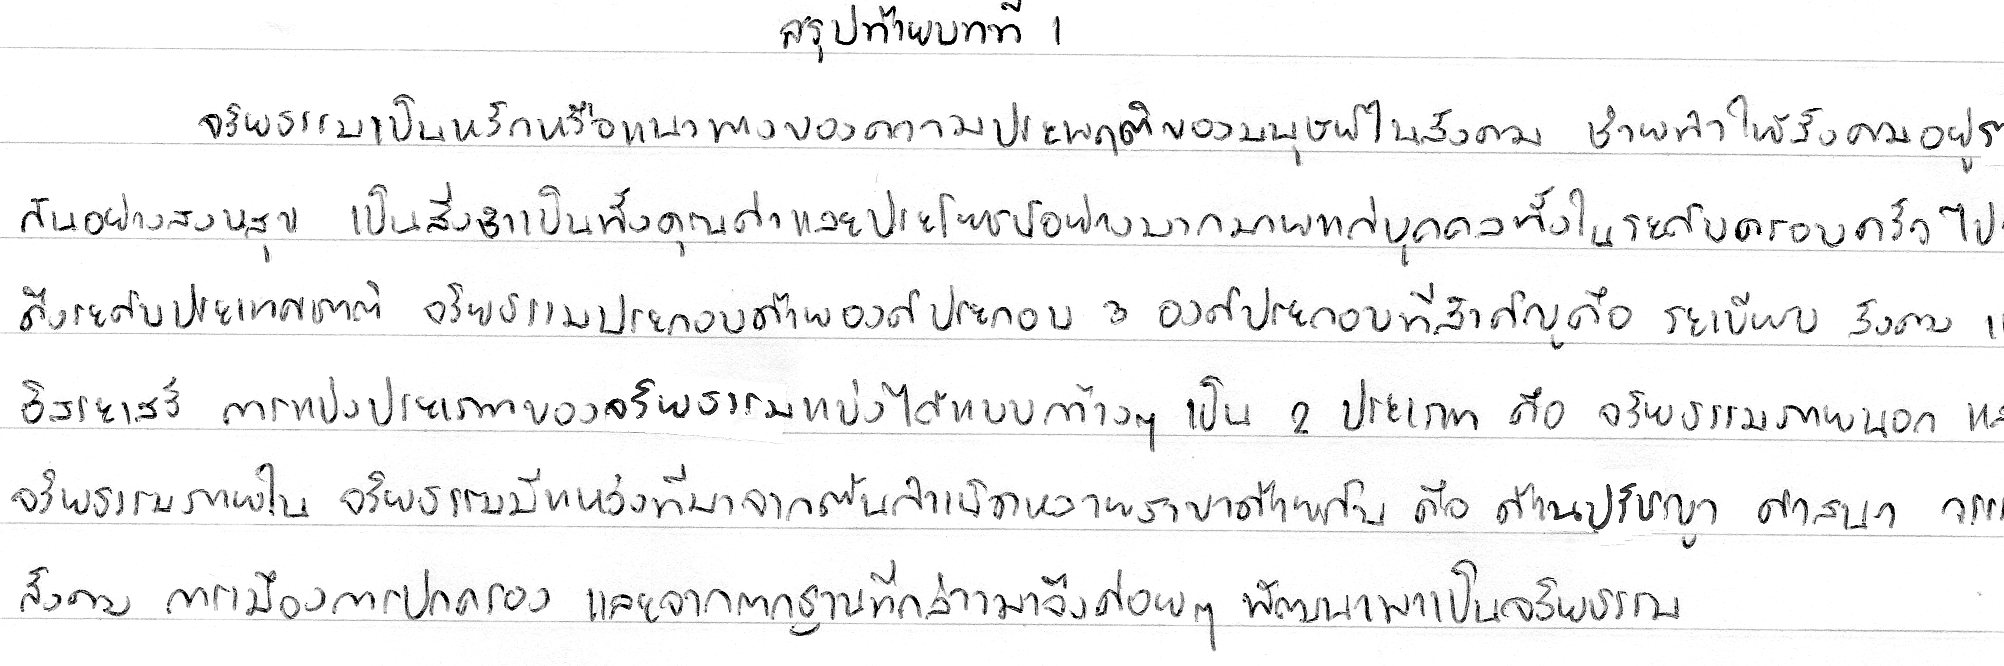 สรุปท้ายบทที่ 1
จริยธรรมเป็นหลักหรือแนวทางของความประพฤติของมนุษย์ในสังคม ช่วยทำให้สังคมอยู่ร
กันอย่างสงบสุข เป็นสิ่งจำเป็นทั้งคุณค่าและประโยชน์อย่างมากมายแก่บุคคลทั้งในระดับครอบครัว ไป
ถึงระดับประเทศชาติ จริยธรรมประกอบด้วยองค์ประกอบ 3 องค์ประกอบที่สำคัญคือ ระเบียบ สังคม แ
อิสระเสรี การแบ่งประเภทของจริยธรรมแบ่งได้แบบกว้างๆ เป็น 2 ประเภท คือ จริยธรรมภายนอก แล
จริยธรรมภายใน จริยธรรมมีแหล่งที่มาจากต้นกำเนิดหลายสาขาด้วยกัน คือ ด้านปรัชญา ศาสนา วรร
สังคม การเมืองการปกครอง และจากรากฐานที่กล่าวมาจึงค่อยๆ พัฒนามาเป็นจริยธรรม